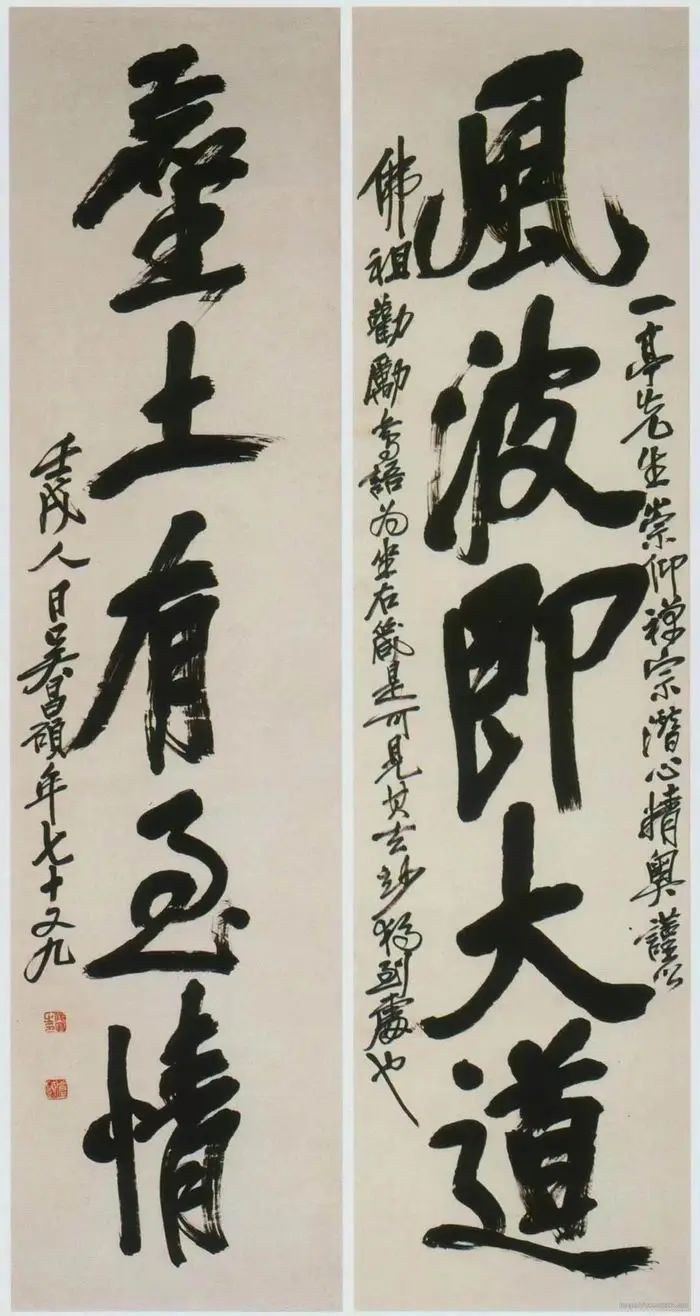 一亭先生崇仰禅宗潛心精奥謹以
風波即大道
佛祖勸勵等語为坐右箴是可見其玄妙獨到處也
塵土有至情
壬戌人日吴昌碩年七十又九